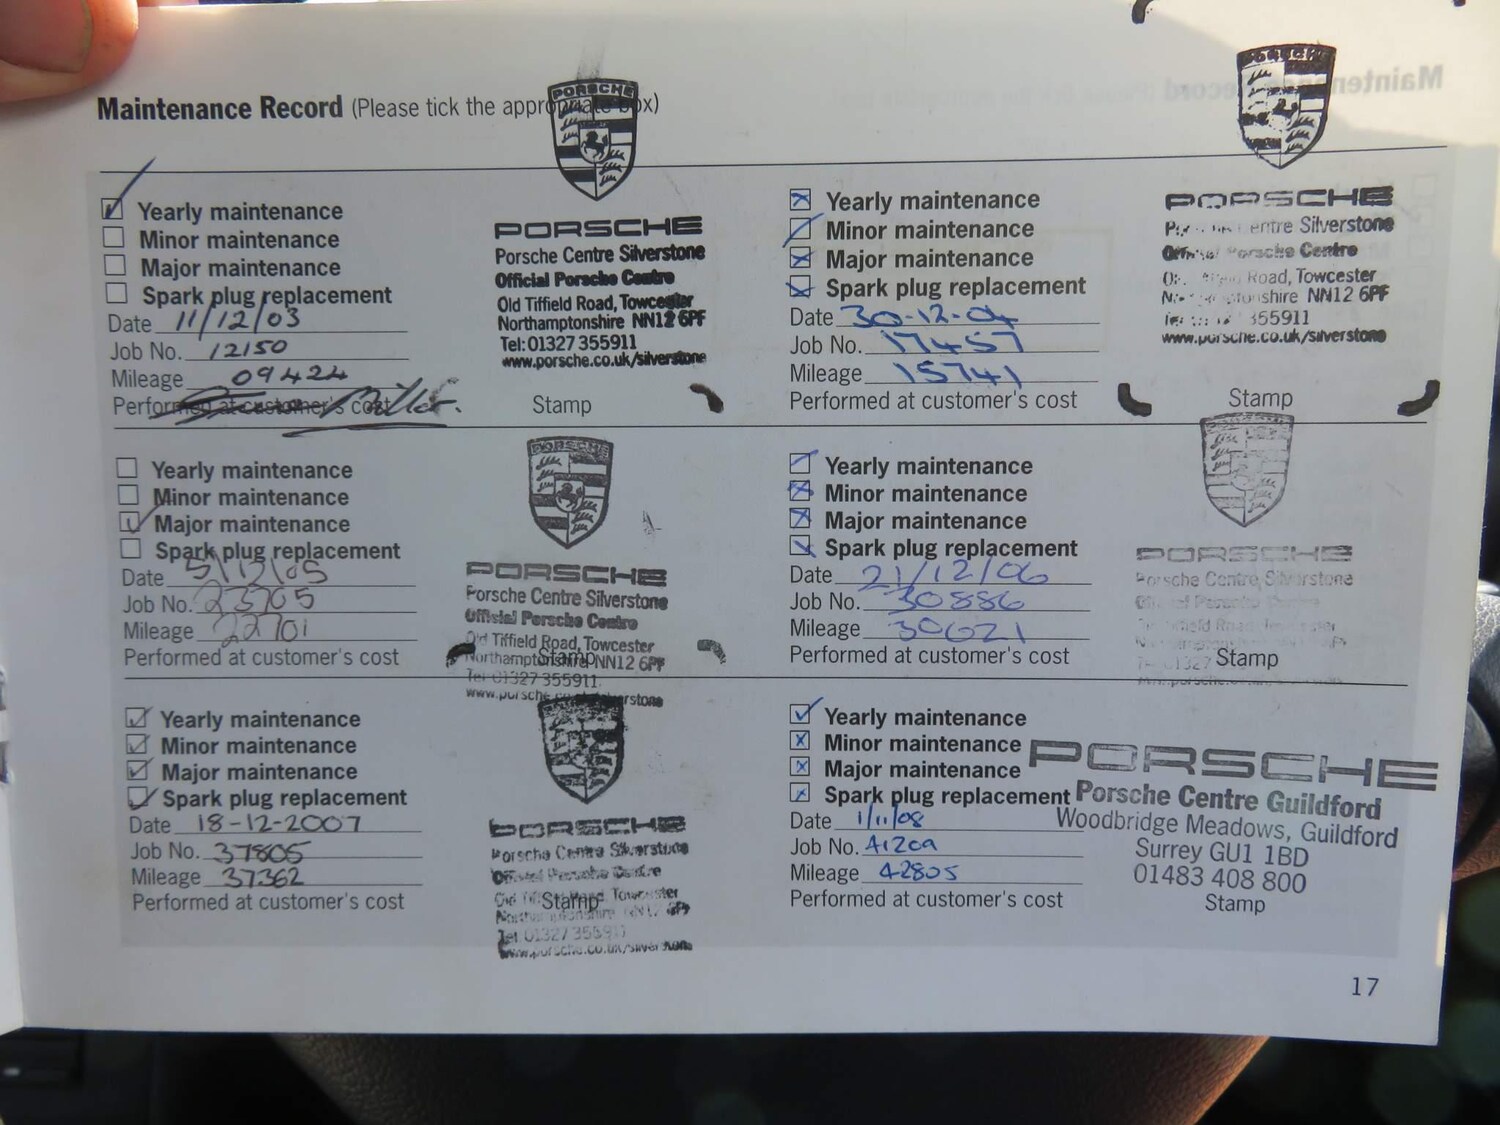 Maintenance Record (Please tick the appropriate box)
PORSCHE
Yearly maintenance
Minor maintenance
Major maintenance
Spark plug replacement
Date 11/12/03
Job No. 12150
Mileage 09424
Performed at customer's cost
PORSCHE
Porsche Centre Silverstone
Official Porsche Centre
Old Tiffield Road, Towcester
Northamptonshire NN12 6PF
Tel: 01327 355911
www.porsche.co.uk/silverstone
Stamp
PORSCHE
Yearly maintenance
Minor maintenance
Major maintenance
Spark plug replacement
Date 30-12-04
Job No. 17457
Mileage 15741
Performed at customer's cost
PORSCHE
Centre Silverstone
Porsche Centre
Road, Towcester
NN12 6PF
355911
www.porsche.co.uk/silverstone
Stamp
Yearly maintenance
Minor maintenance
Major maintenance
Spark plug replacement
Date 5/12/05
Job No. 23705
Mileage 22701
Performed at customer's cost
PORSCHE
PORSCHE
Porsche Centre Silverstone
Official Porsche Centre
Old Tiffield Road, Towcester
Northamptonshire NN12 6PF
Tel: 01327 355911
www.porsche.co.uk/silverstone
Stamp
Yearly maintenance
Minor maintenance
Major maintenance
Spark plug replacement
Date 21/12/06
Job No. 30886
Mileage 30621
Performed at customer's cost
PORSCHE
Porsche Centre Silverstone
Stamp
Yearly maintenance
Minor maintenance
Major maintenance
Spark plug replacement
Date 18-12-2007
Job No. 37805
Mileage 37362
Performed at customer's cost
PORSCHE
Porsche Centre Silverstone
Official Porsche Centre
Road, Towcester
Tel: 01327 355911
www.porsche.co.uk/silverstone
Stamp
Yearly maintenance
Minor maintenance
Major maintenance
Spark plug replacement
Date 1/11/08
Job No.
Mileage 42805
Performed at customer's cost
PORSCHE
Porsche Centre Guildford
Woodbridge Meadows, Guildford
Surrey GU1 1BD
01483 408 800
Stamp
17